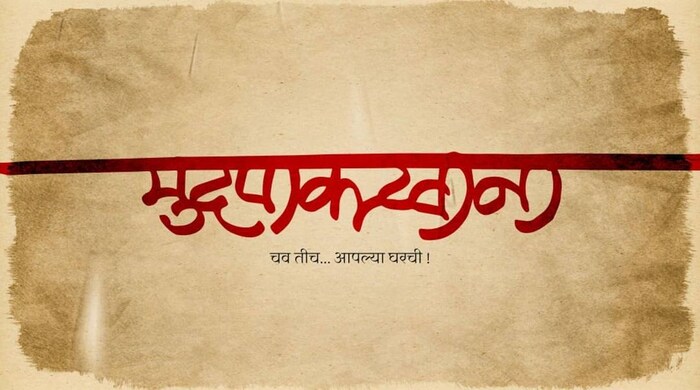 मुदपाकखाना
चव तीच... आपल्या घरची !